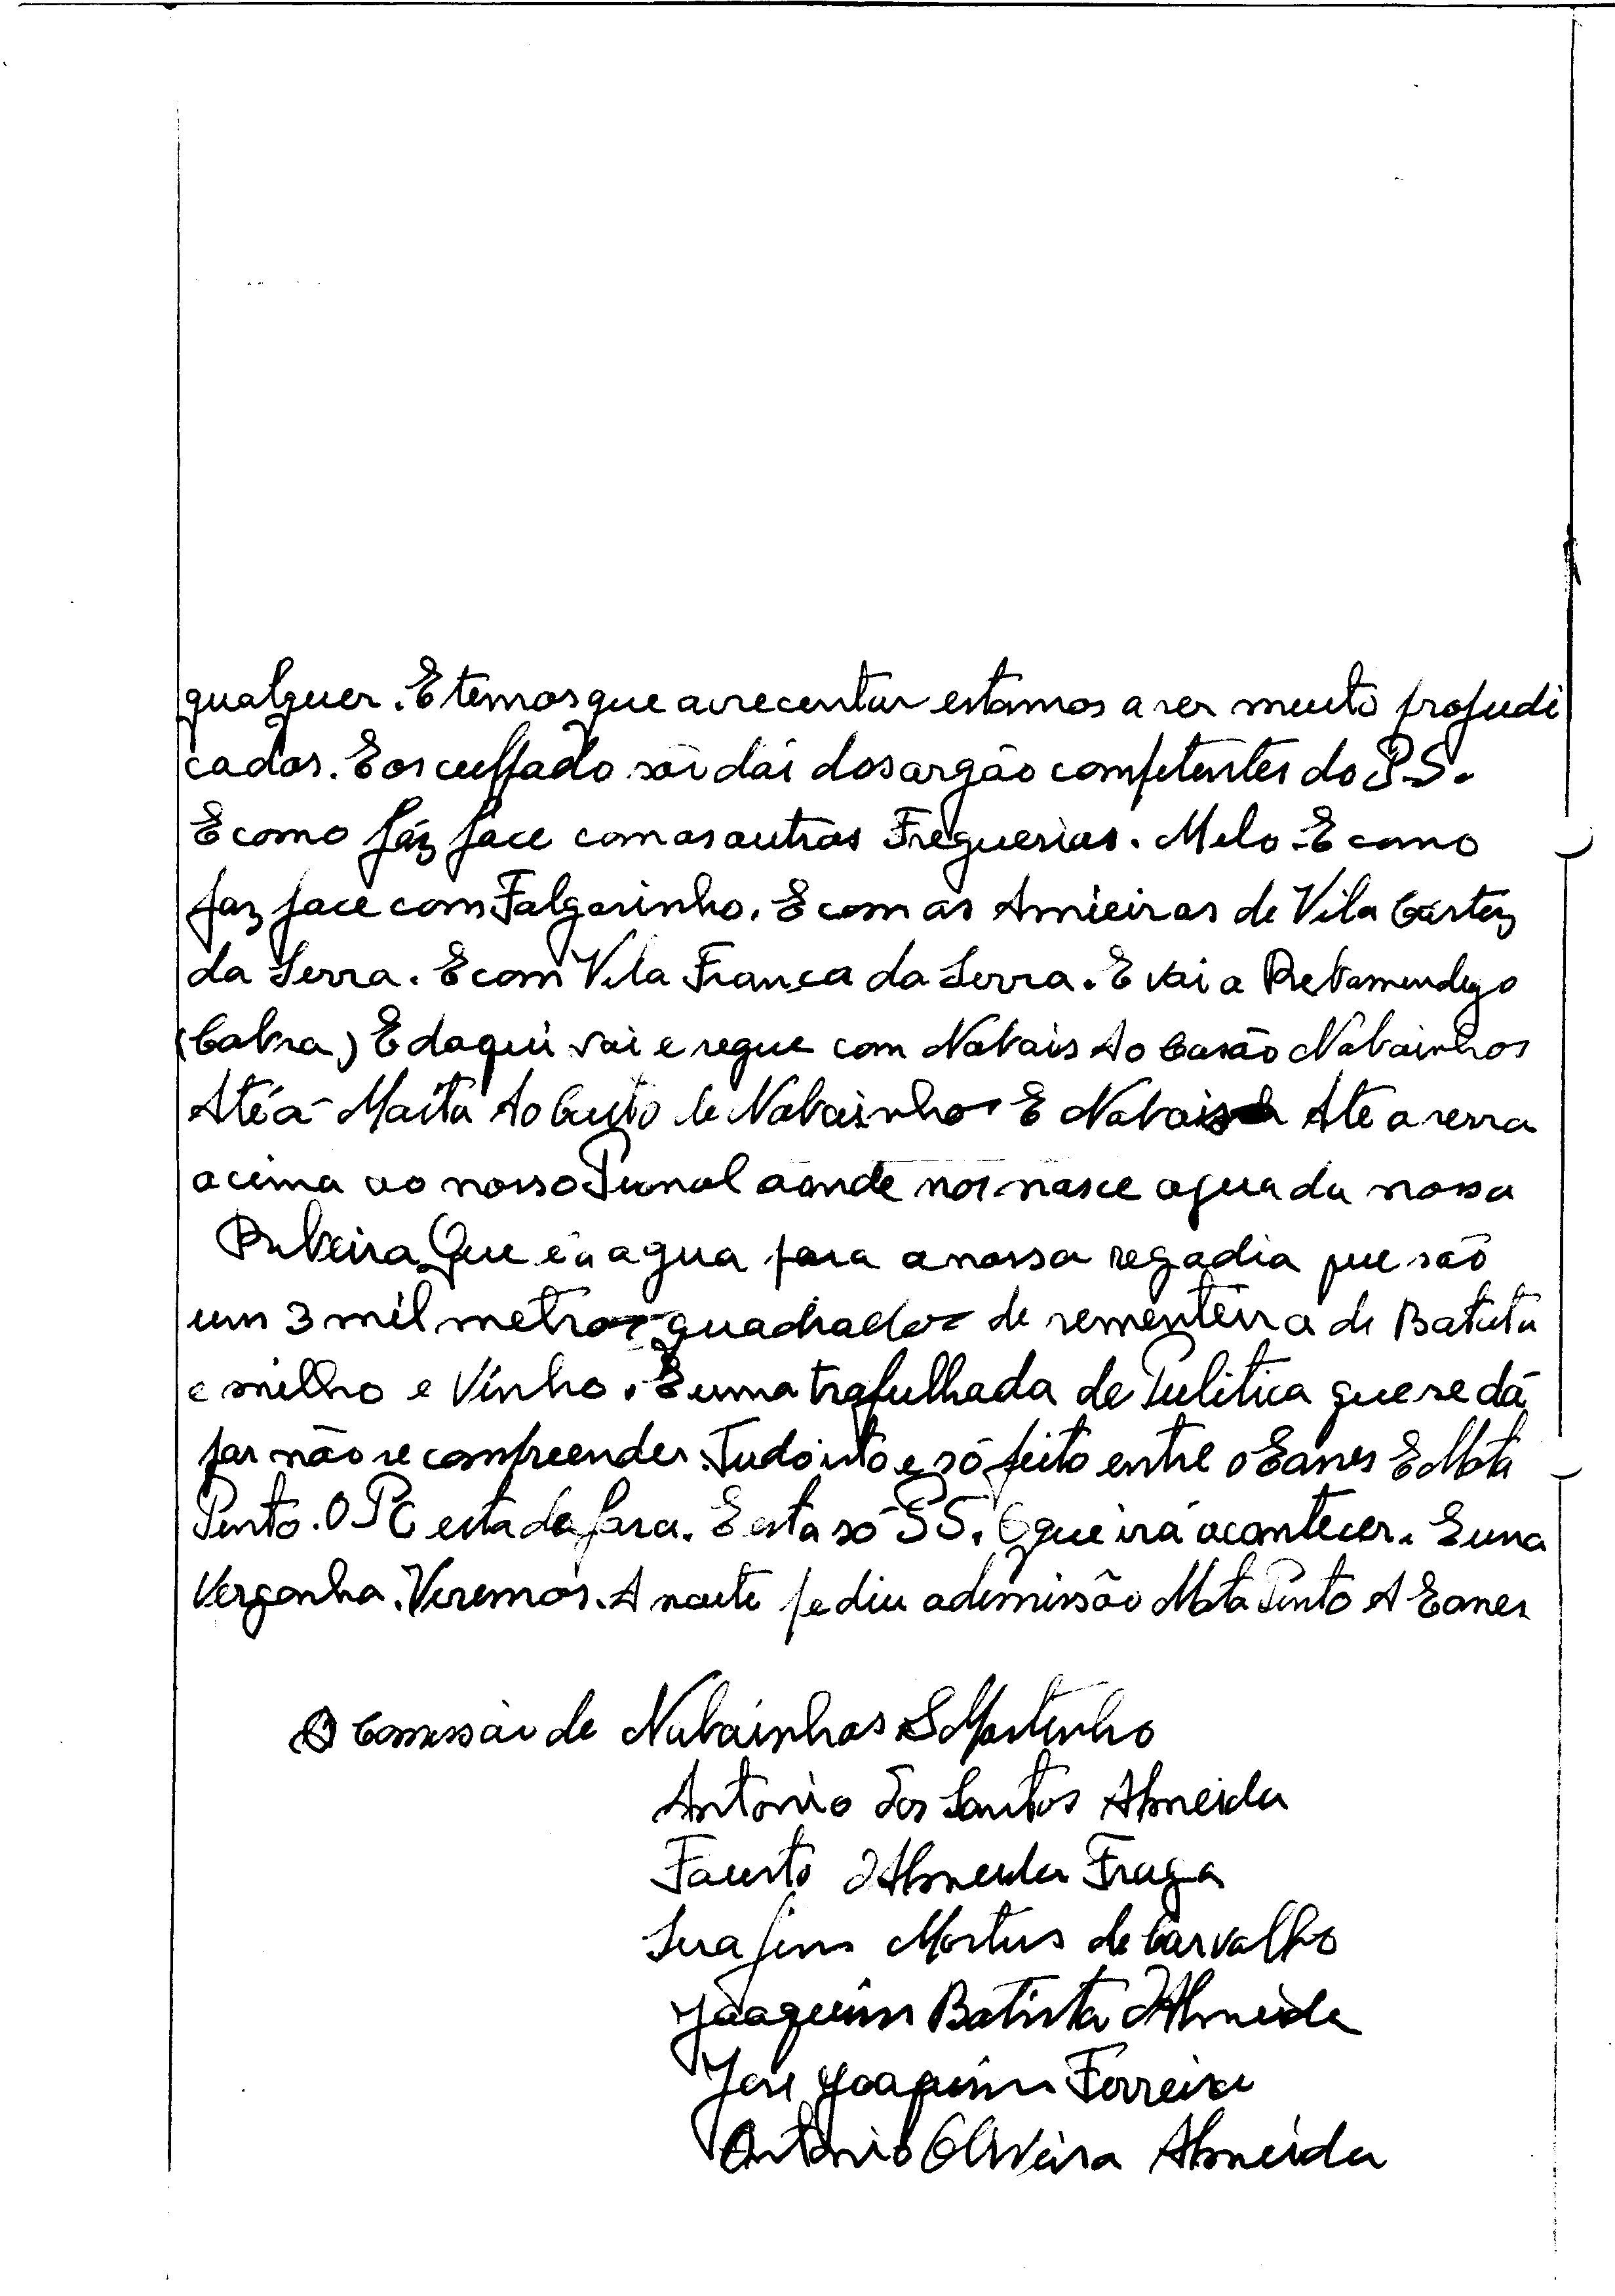 qualquer. E temos que acrecentar estamos a ser muito projudi
cados. E os culpado sòi dài dos argão competentes do P.S.
E como fáz face com as outras Freguesias. Melo. E como
faz face com Falgosinho. E com as Amieiras de Vila Cortez
da Serra. E com Vila Franca da Serra. E vai a Rebamondego
(Cabra) E daqui vai e segue com Nabais Ao Casão Nabainhos
Até á Maita Ao Couto de Nabainhos E Nabais Ate a serra
acima ao nosso aonde nos nasce agua da nossa
Rubeira Que é a agua para a nossa regadia que são
uns 3 mil metros quadrados de sementeira de Batata
e milho e Vinho. E uma trafulhada de Pulitica que se dá
por não se compreender. Tudo isto e só feito entre o Eanes E Mota
Pinto. O PC esta de fora. E esta só PS. O que irá acontecer. E uma
Vergonha. Veremos. A noute pediu a demissão Mota Pinto A Eanes
A Comissão de Nabainhos S Martinho
Antonio dos Santos Almeida
Fausto d'Almeida Fraga
Serafim Martins de Carvalho
Joaquim Batista d'Almeida
José Joaquim Ferreira
Antonio Oliveira Almeida